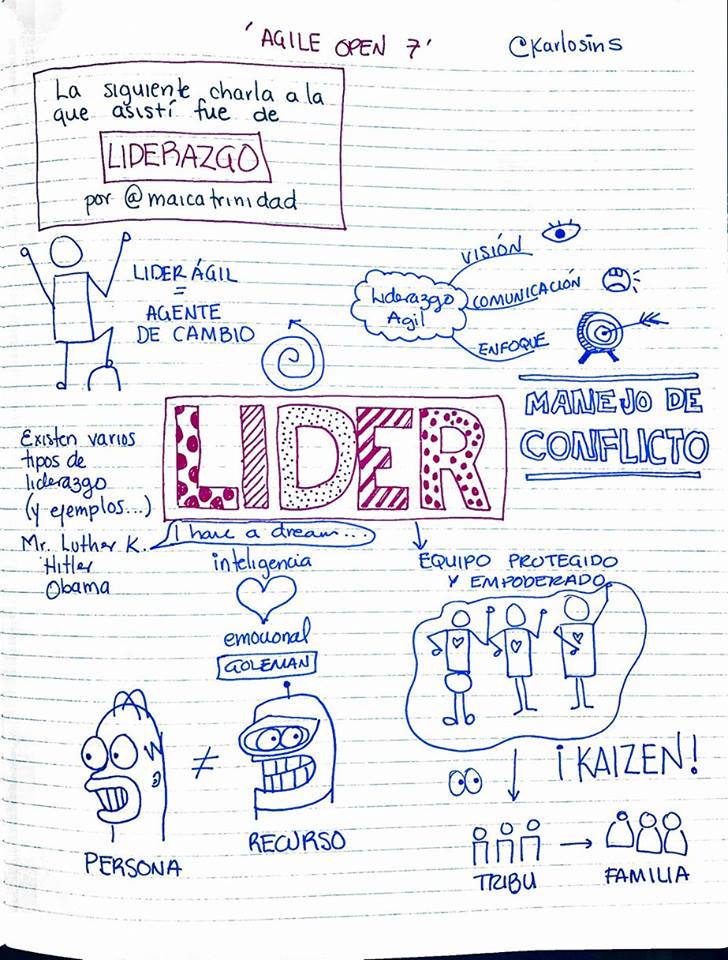 'AGILE OPEN 7'
@Karlosins
La siguiente charla a la
que asistí fue de
LIDERAZGO
por @maicatrinidad
LIDER ÁGIL
=
AGENTE
DE CAMBIO
Liderazgo
Agil
VISIÓN
COMUNICACIÓN
ENFOQUE
MANEJO DE
CONFLICTO
LIDER
Existen varios
tipos de
liderazgo
(y ejemplos...)
Mr. Luther K.
Hitler
Obama
I have a dream...
inteligencia
emocional
GOLEMAN
EQUIPO PROTEGIDO
Y EMPODERADO
¡KAIZEN!
PERSONA
≠
RECURSO
TRIBU
→
FAMILIA